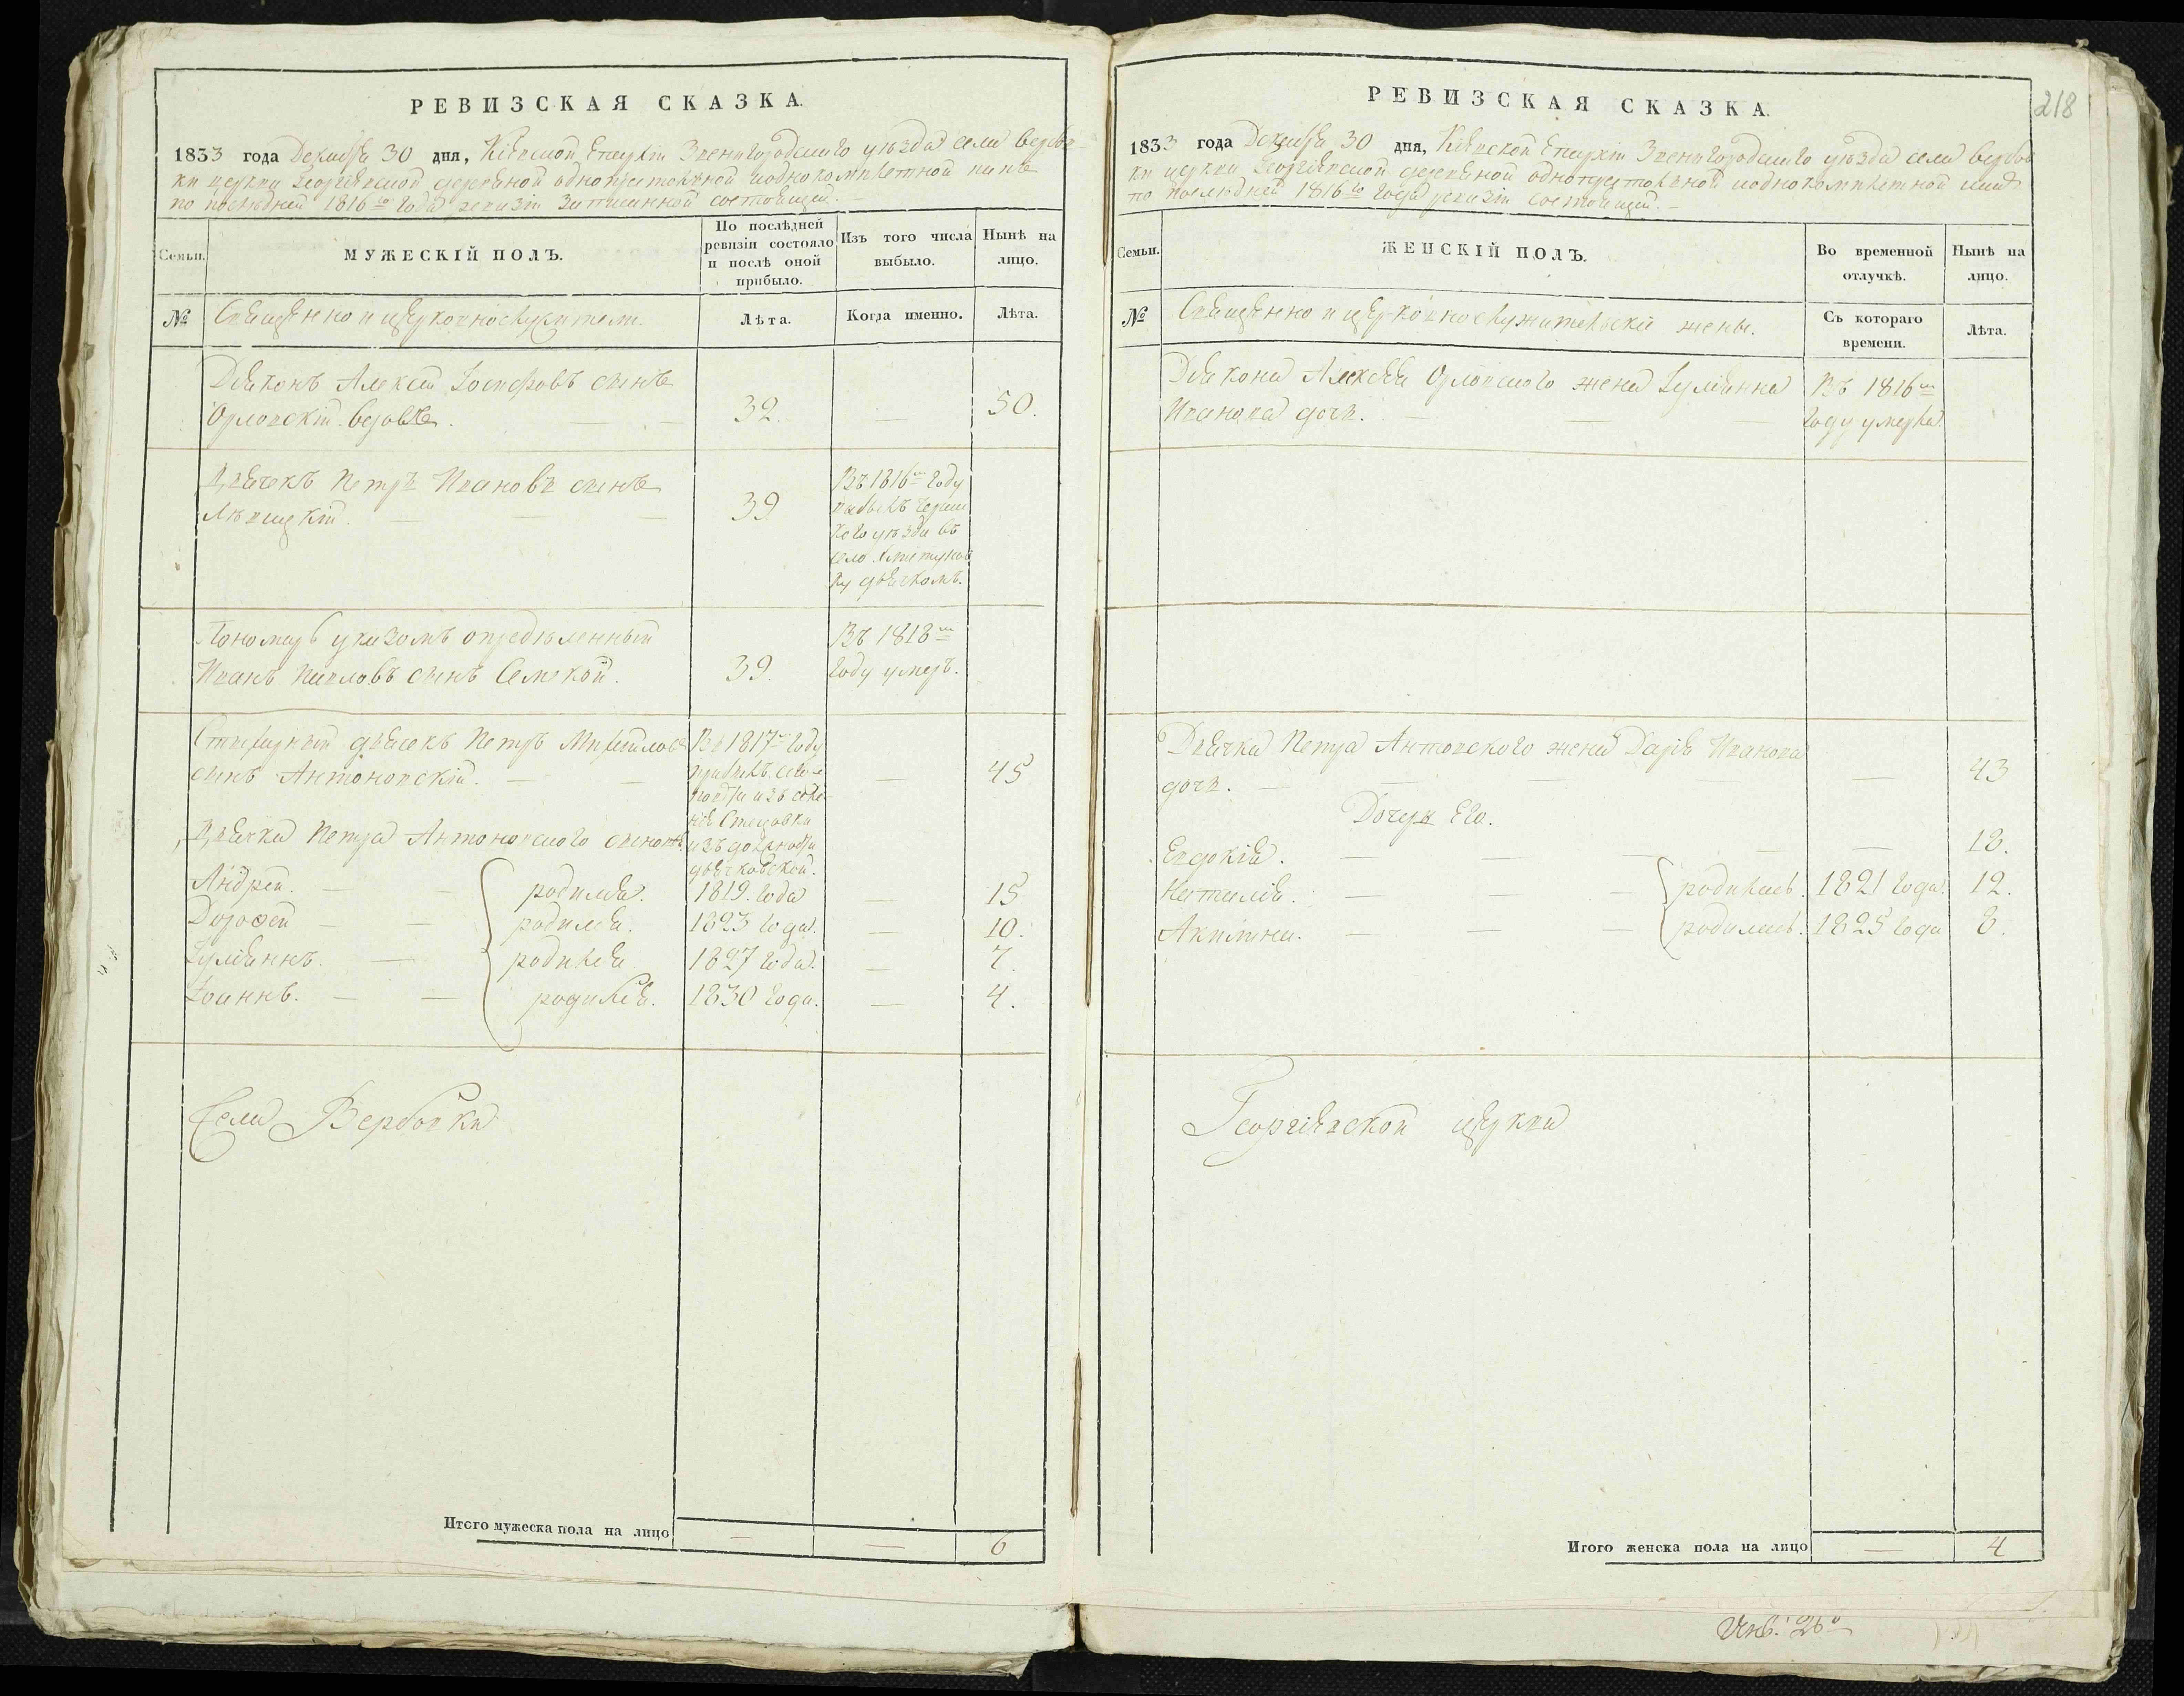 РЕВИЗСКАЯ СКАЗКА.
1833 года Декабря 30 дня, Кіевской Епархіи Звенигородскаго уѣзда села Вербов-
ки церкви Георгіевской деревяной однопрестольной и однокомплетной
по послѣдней 1816го года ревизіи состоящей.
Семьи.
МУЖЕСКІЙ ПОЛЪ.
По послѣдней
ревизіи состояло
и послѣ оной
прибыло.
Изъ того числа
выбыло.
Нынѣ на
лицо.
№
Священно и церковнослужители.
Лѣта.
Когда именно.
Лѣта.
Діаконъ Алексій Іосифовъ сынъ
Орловскій вдовъ. 32. — 50.
Дьячекъ Петръ Ивановъ сынъ
39
Въ 1816м году
выбылъ
уѣзда въ
село
дьячкомъ.
Пономарь указомъ опредѣленный
Иванъ Павловъ сынъ 39.
Въ 1818м
году умеръ.
Стихарный дьячекъ Петръ Михайловъ
сынъ Антоновскій. — — 45
Въ 1817м году
прибылъ
изъ
дьячковской.
Дьячка Петра Антоновского сыновья
Андрей. — — родился. 1819. года — 15
Дорофей — — родился. 1823 года. — 10.
Іуліаннъ. — родился 1827 года. — 7.
Іоаннъ. — — родился. 1830 года. — 4.
Села Вербовки
Итого мужеска пола на лицо — — 6
218
РЕВИЗСКАЯ СКАЗКА.
1833 года Декабря 30 дня, Кіевской Епархіи Звенигородскаго уѣзда села Вербов
ки церкви Георгіевской деревяной однопрестольной и однокомплетной
по послѣдней 1816го года ревизіи состоящей. —
Семьи.
ЖЕНСКІЙ ПОЛЪ.
Во временной
отлучкѣ.
Нынѣ на
лицо.
№
Священно и церковнослужительскіе жены.
Съ котораго
времени.
Лѣта.
Діакона Алексѣя Орловского жена Іуліанна
Иванова дочь. — — —
Въ 1816м
году умерла.
Дьячка Петра Антовского жена Дарія Иванова
дочь. — — — — 43
Дочери Его.
Евдокія. — — — — — 18.
Наталія. — — — родилась. 1821 года. 12.
Акилина. — — — родилась. 1825 года 8.
Георгіевской церкви
Итого женска пола на лицо — 4